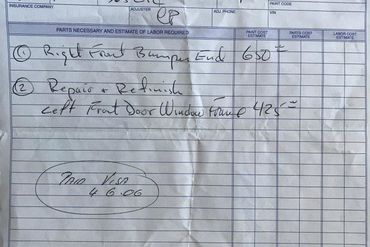 INSURANCE COMPANY ADJUSTER ADJ. PHONE PAINT CODE
VIN
PARTS NECESSARY AND ESTIMATE OF LABOR REQUIRED PAINT COST ESTIMATE PARTS COST ESTIMATE LABOR COST ESTIMATE
① Right Front Bumper End 650
② Repair + Refinish
Left Front Door Window Frame 425
PAID VISA
4 6.06